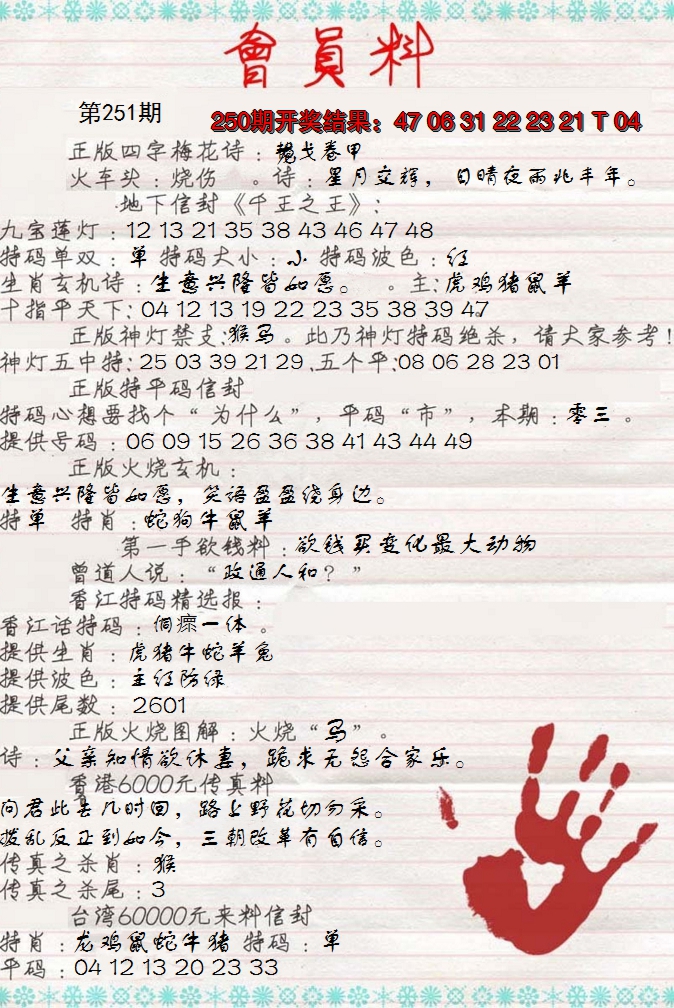 會員料
第251期
250期开奖结果：47 06 31 22 23 21 T 04
正版四字梅花诗：韬戈卷甲
火车头：烧伤 。诗：星月交辉，日晴夜雨兆丰年。
地下信封《千王之王》：
九宝莲灯：12 13 21 35 38 43 46 47 48
特码单双：单 特码大小：小 特码波色：红
生肖玄机诗：生意兴隆皆如愿。 。主：虎鸡猪鼠羊
十指平天下：04 12 13 19 22 23 35 38 39 47
正版神灯禁支：猴马。此乃神灯特码绝杀，请大家参考！
神灯五中特：25 03 39 21 29 .五个平：08 06 28 23 01
正版特平码信封
特码心想要找个“为什么”，平码“市”，本期：零三 。
提供号码：06 09 15 26 36 38 41 43 44 49
正版火烧玄机：
生意兴隆皆如愿，笑语盈盈绕身边。
特单 特肖：蛇狗牛鼠羊
第一手欲钱料：欲钱买变化最大动物
曾道人说：“政通人和？”
香江特码精选报：
香江话特码：侗瘝一体 。
提供生肖：虎猪牛蛇羊兔
提供波色：主红防绿
提供尾数：2601
正版火烧图解：火烧“马”。
诗：父亲知情欲休妻，跪求无怨合家乐。
香港6000元传真料
问君此去几时回，路上野花切勿采。
拨乱反正到如今，三朝改革有自信。
传真之杀肖：猴
传真之杀尾：3
台湾60000元来料信封
特肖：龙鸡鼠蛇牛猪 特码：单
平码：04 12 13 20 23 33